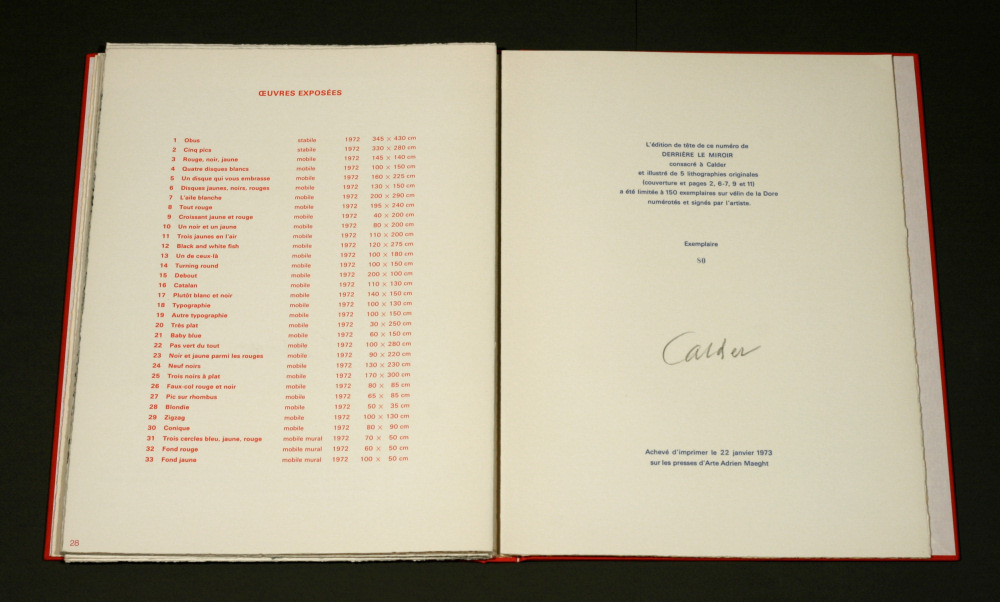 ŒUVRES EXPOSÉES
1 Obus stabile 1972 345 × 430 cm
2 Cinq pics stabile 1972 330 × 280 cm
3 Rouge, noir, jaune mobile 1972 145 × 140 cm
4 Quatre disques blancs mobile 1972 100 × 150 cm
5 Un disque qui vous embrasse mobile 1972 160 × 225 cm
6 Disques jaunes, noirs, rouges mobile 1972 130 × 150 cm
7 L'aile blanche mobile 1972 200 × 290 cm
8 Tout rouge mobile 1972 195 × 240 cm
9 Croissant jaune et rouge mobile 1972 40 × 200 cm
10 Un noir et un jaune mobile 1972 80 × 200 cm
11 Trois jaunes en l'air mobile 1972 110 × 200 cm
12 Black and white fish mobile 1972 120 × 275 cm
13 Un de ceux-là mobile 1972 100 × 180 cm
14 Turning round mobile 1972 100 × 150 cm
15 Debout mobile 1972 200 × 100 cm
16 Catalan mobile 1972 110 × 130 cm
17 Plutôt blanc et noir mobile 1972 140 × 150 cm
18 Typographie mobile 1972 100 × 130 cm
19 Autre typographie mobile 1972 100 × 150 cm
20 Très plat mobile 1972 30 × 250 cm
21 Baby blue mobile 1972 60 × 150 cm
22 Pas vert du tout mobile 1972 100 × 280 cm
23 Noir et jaune parmi les rouges mobile 1972 90 × 220 cm
24 Neuf noirs mobile 1972 130 × 230 cm
25 Trois noirs à plat mobile 1972 170 × 300 cm
26 Faux-col rouge et noir mobile 1972 80 × 85 cm
27 Pic sur rhombus mobile 1972 65 × 85 cm
28 Blondie mobile 1972 50 × 35 cm
29 Zigzag mobile 1972 100 × 130 cm
30 Conique mobile 1972 80 × 90 cm
31 Trois cercles bleu, jaune, rouge mobile mural 1972 70 × 50 cm
32 Fond rouge mobile mural 1972 60 × 50 cm
33 Fond jaune mobile mural 1972 100 × 50 cm
26
L'édition de tête de ce numéro de
DERRIÈRE LE MIROIR
consacré à Calder
et illustré de 5 lithographies originales
(couverture et pages 2, 6-7, 9 et 11)
a été limitée à 150 exemplaires sur vélin de la Dore
numérotés et signés par l'artiste.
Exemplaire
80
Calder
Achevé d'imprimer le 22 janvier 1973
sur les presses d'Arte Adrien Maeght